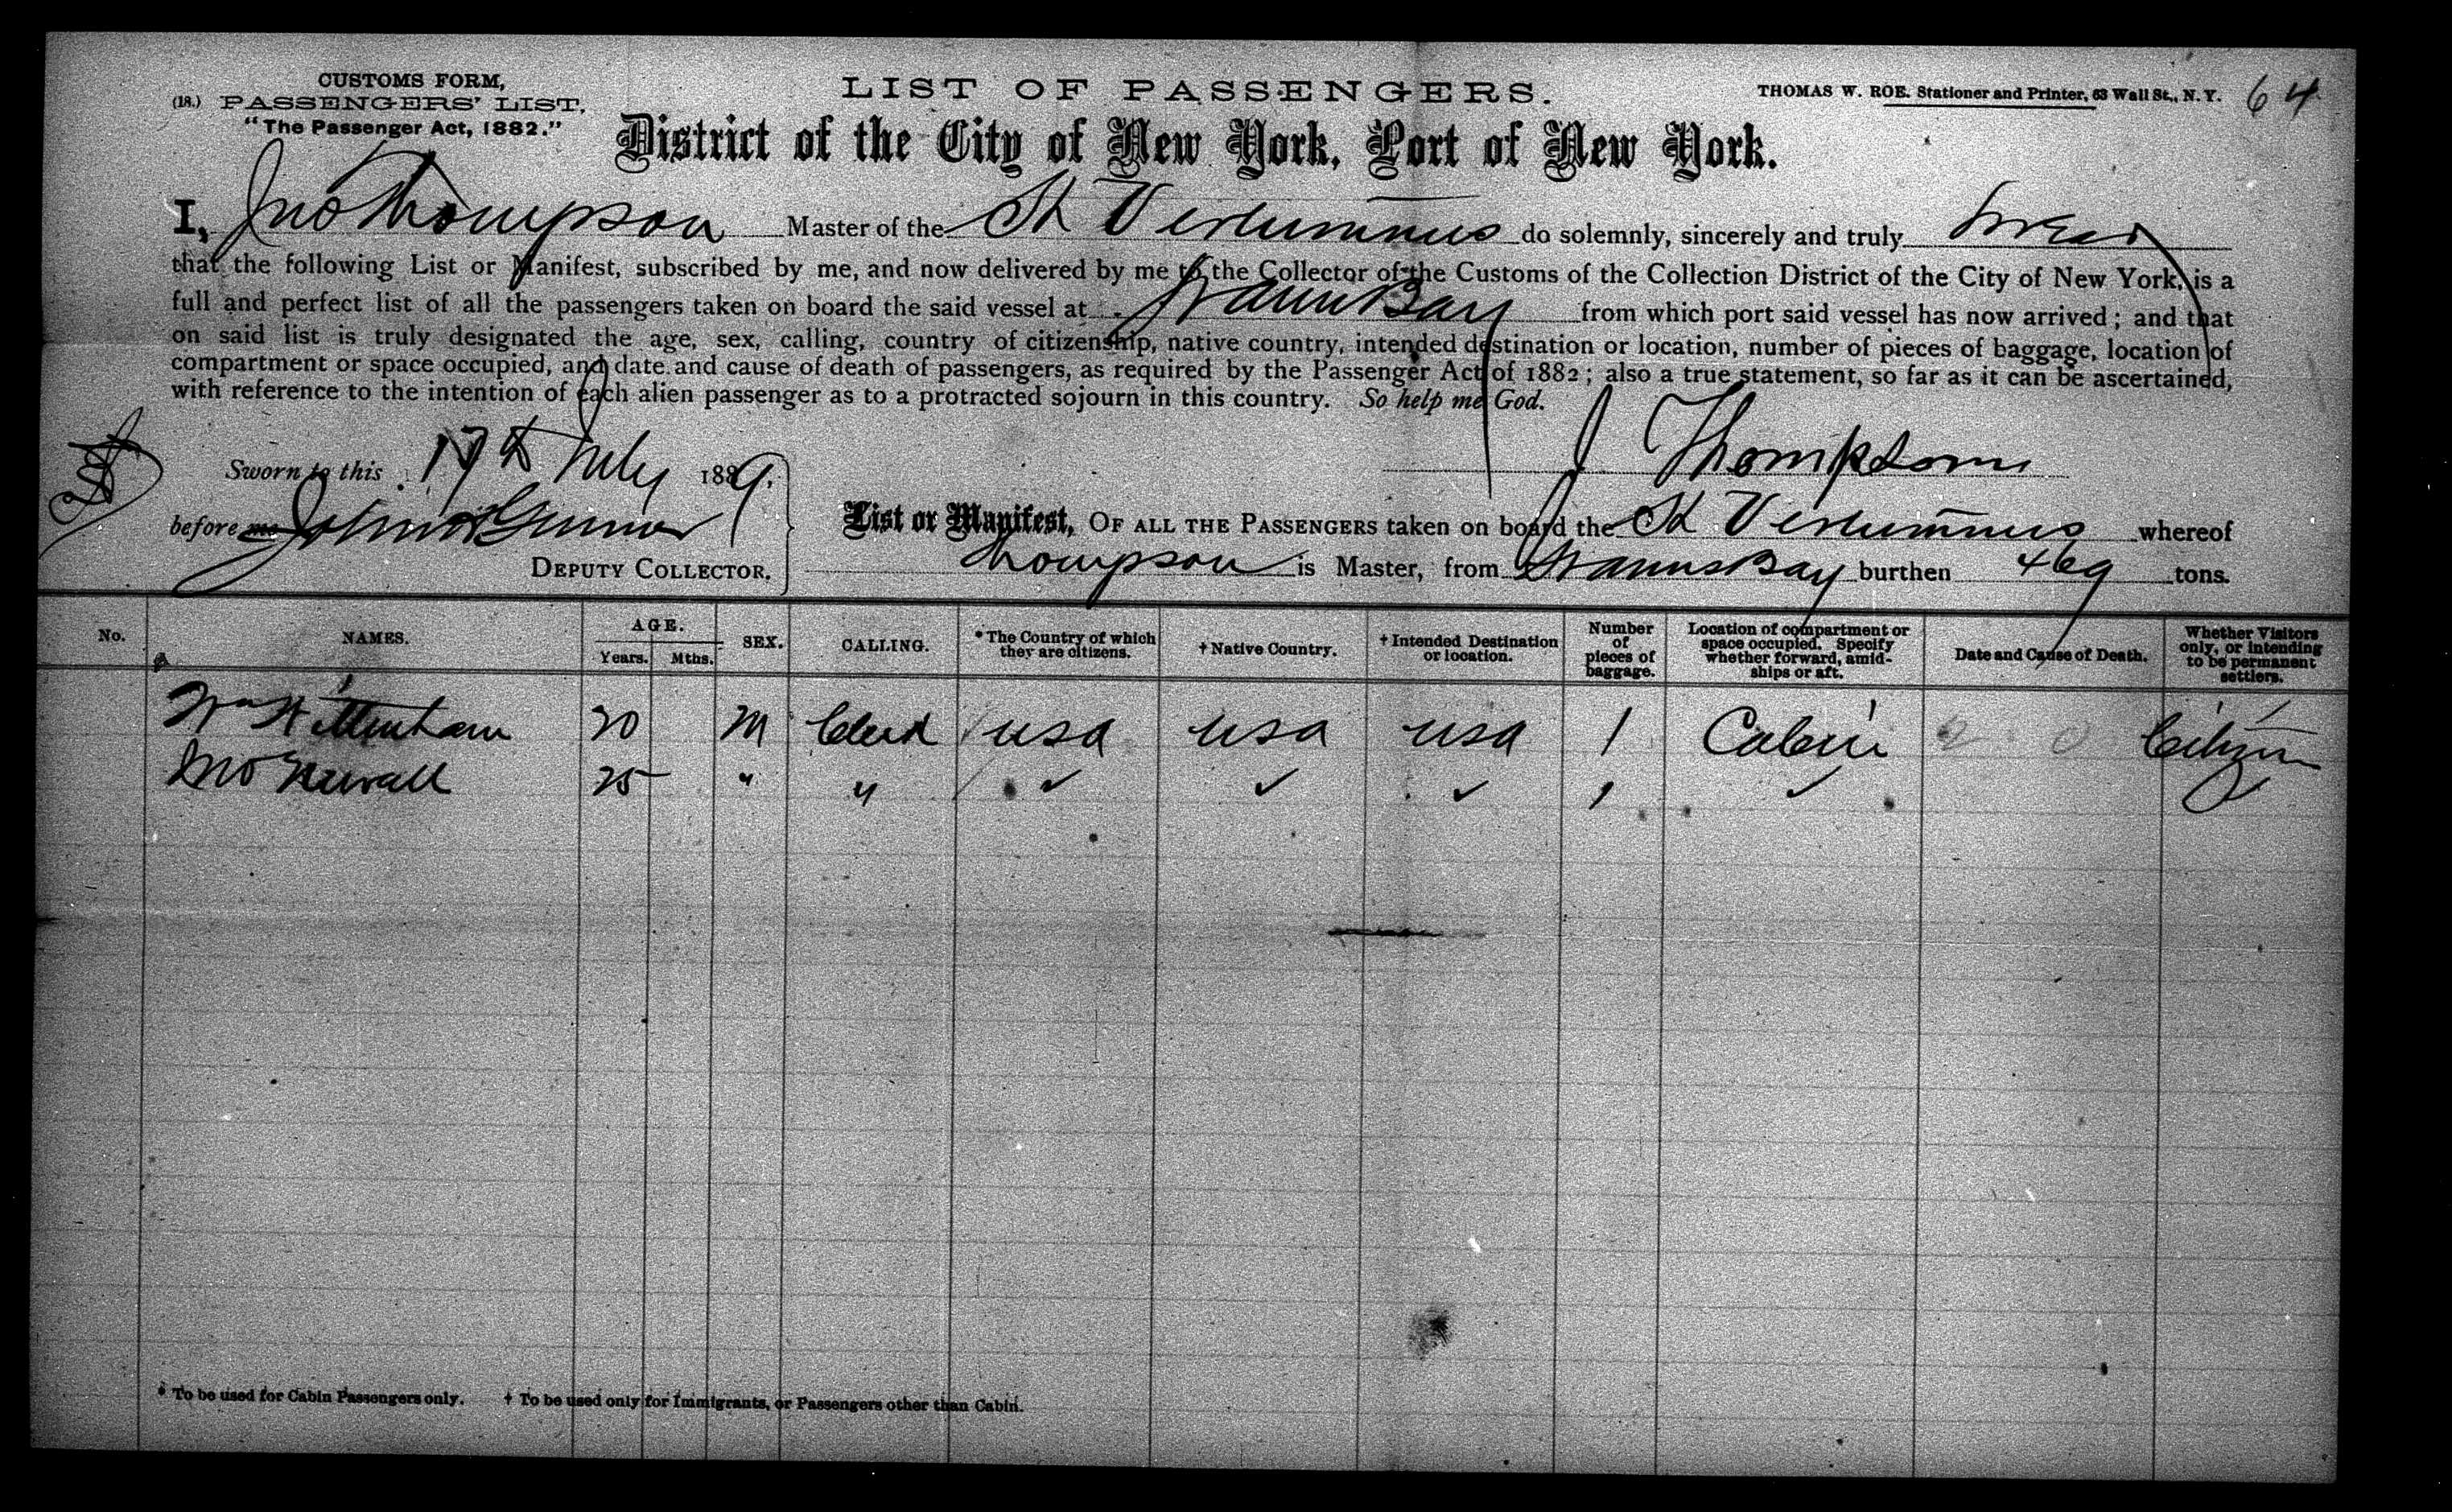 CUSTOMS FORM,
(18.) PASSENGERS' LIST.
"The Passenger Act, 1882."
LIST OF PASSENGERS.
THOMAS W. ROE. Stationer and Printer, 63 Wall St., N. Y.
64
District of the City of New York, Port of New York.
I, Jno Thompson Master of the St Vertumnus do solemnly, sincerely and truly swear
that the following List or Manifest, subscribed by me, and now delivered by me to the Collector of the Customs of the Collection District of the City of New York, is a
full and perfect list of all the passengers taken on board the said vessel at Bay from which port said vessel has now arrived; and that
on said list is truly designated the age, sex, calling, country of citizenship, native country, intended destination or location, number of pieces of baggage, location of
compartment or space occupied, and date and cause of death of passengers, as required by the Passenger Act of 1882; also a true statement, so far as it can be ascertained,
with reference to the intention of each alien passenger as to a protracted sojourn in this country. So help me God.
J Thompson
Sworn to this 17th July 1889.
before me John
DEPUTY COLLECTOR.
List or Manifest, OF ALL THE PASSENGERS taken on board the St Vertumnus whereof
Thompson is Master, from Bay burthen 469 tons.
No. NAMES. AGE. Years. Mths. SEX. CALLING. * The Country of which they are citizens. † Native Country. † Intended Destination or location. Number of pieces of baggage. Location of compartment or space occupied. Specify whether forward, amidships or aft. Date and Cause of Death. Whether Visitors only, or intending to be permanent settlers.
Wm 20 M Clerk USA USA USA 1 Cabin 2 0 Citizen
Jno Newall 25 " " ✓ ✓ ✓ 1 ✓
* To be used for Cabin Passengers only. † To be used only for Immigrants, or Passengers other than Cabin.